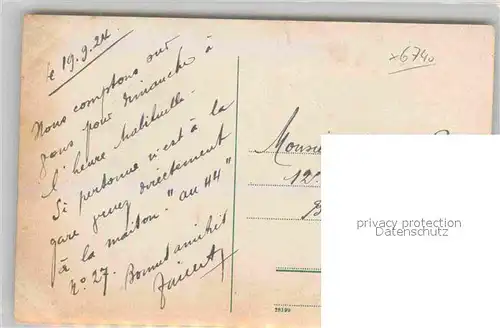 le 19.9.24.
Nous comptons sur
vous pour dimanche à
l'heure habituelle.
Si personne n'est à la
gare venez directement
à la maison "au 44"
N° 27. Bonnes amitiés
x6740
Monsieu
12
B
privacy protection
Datenschutz
78199